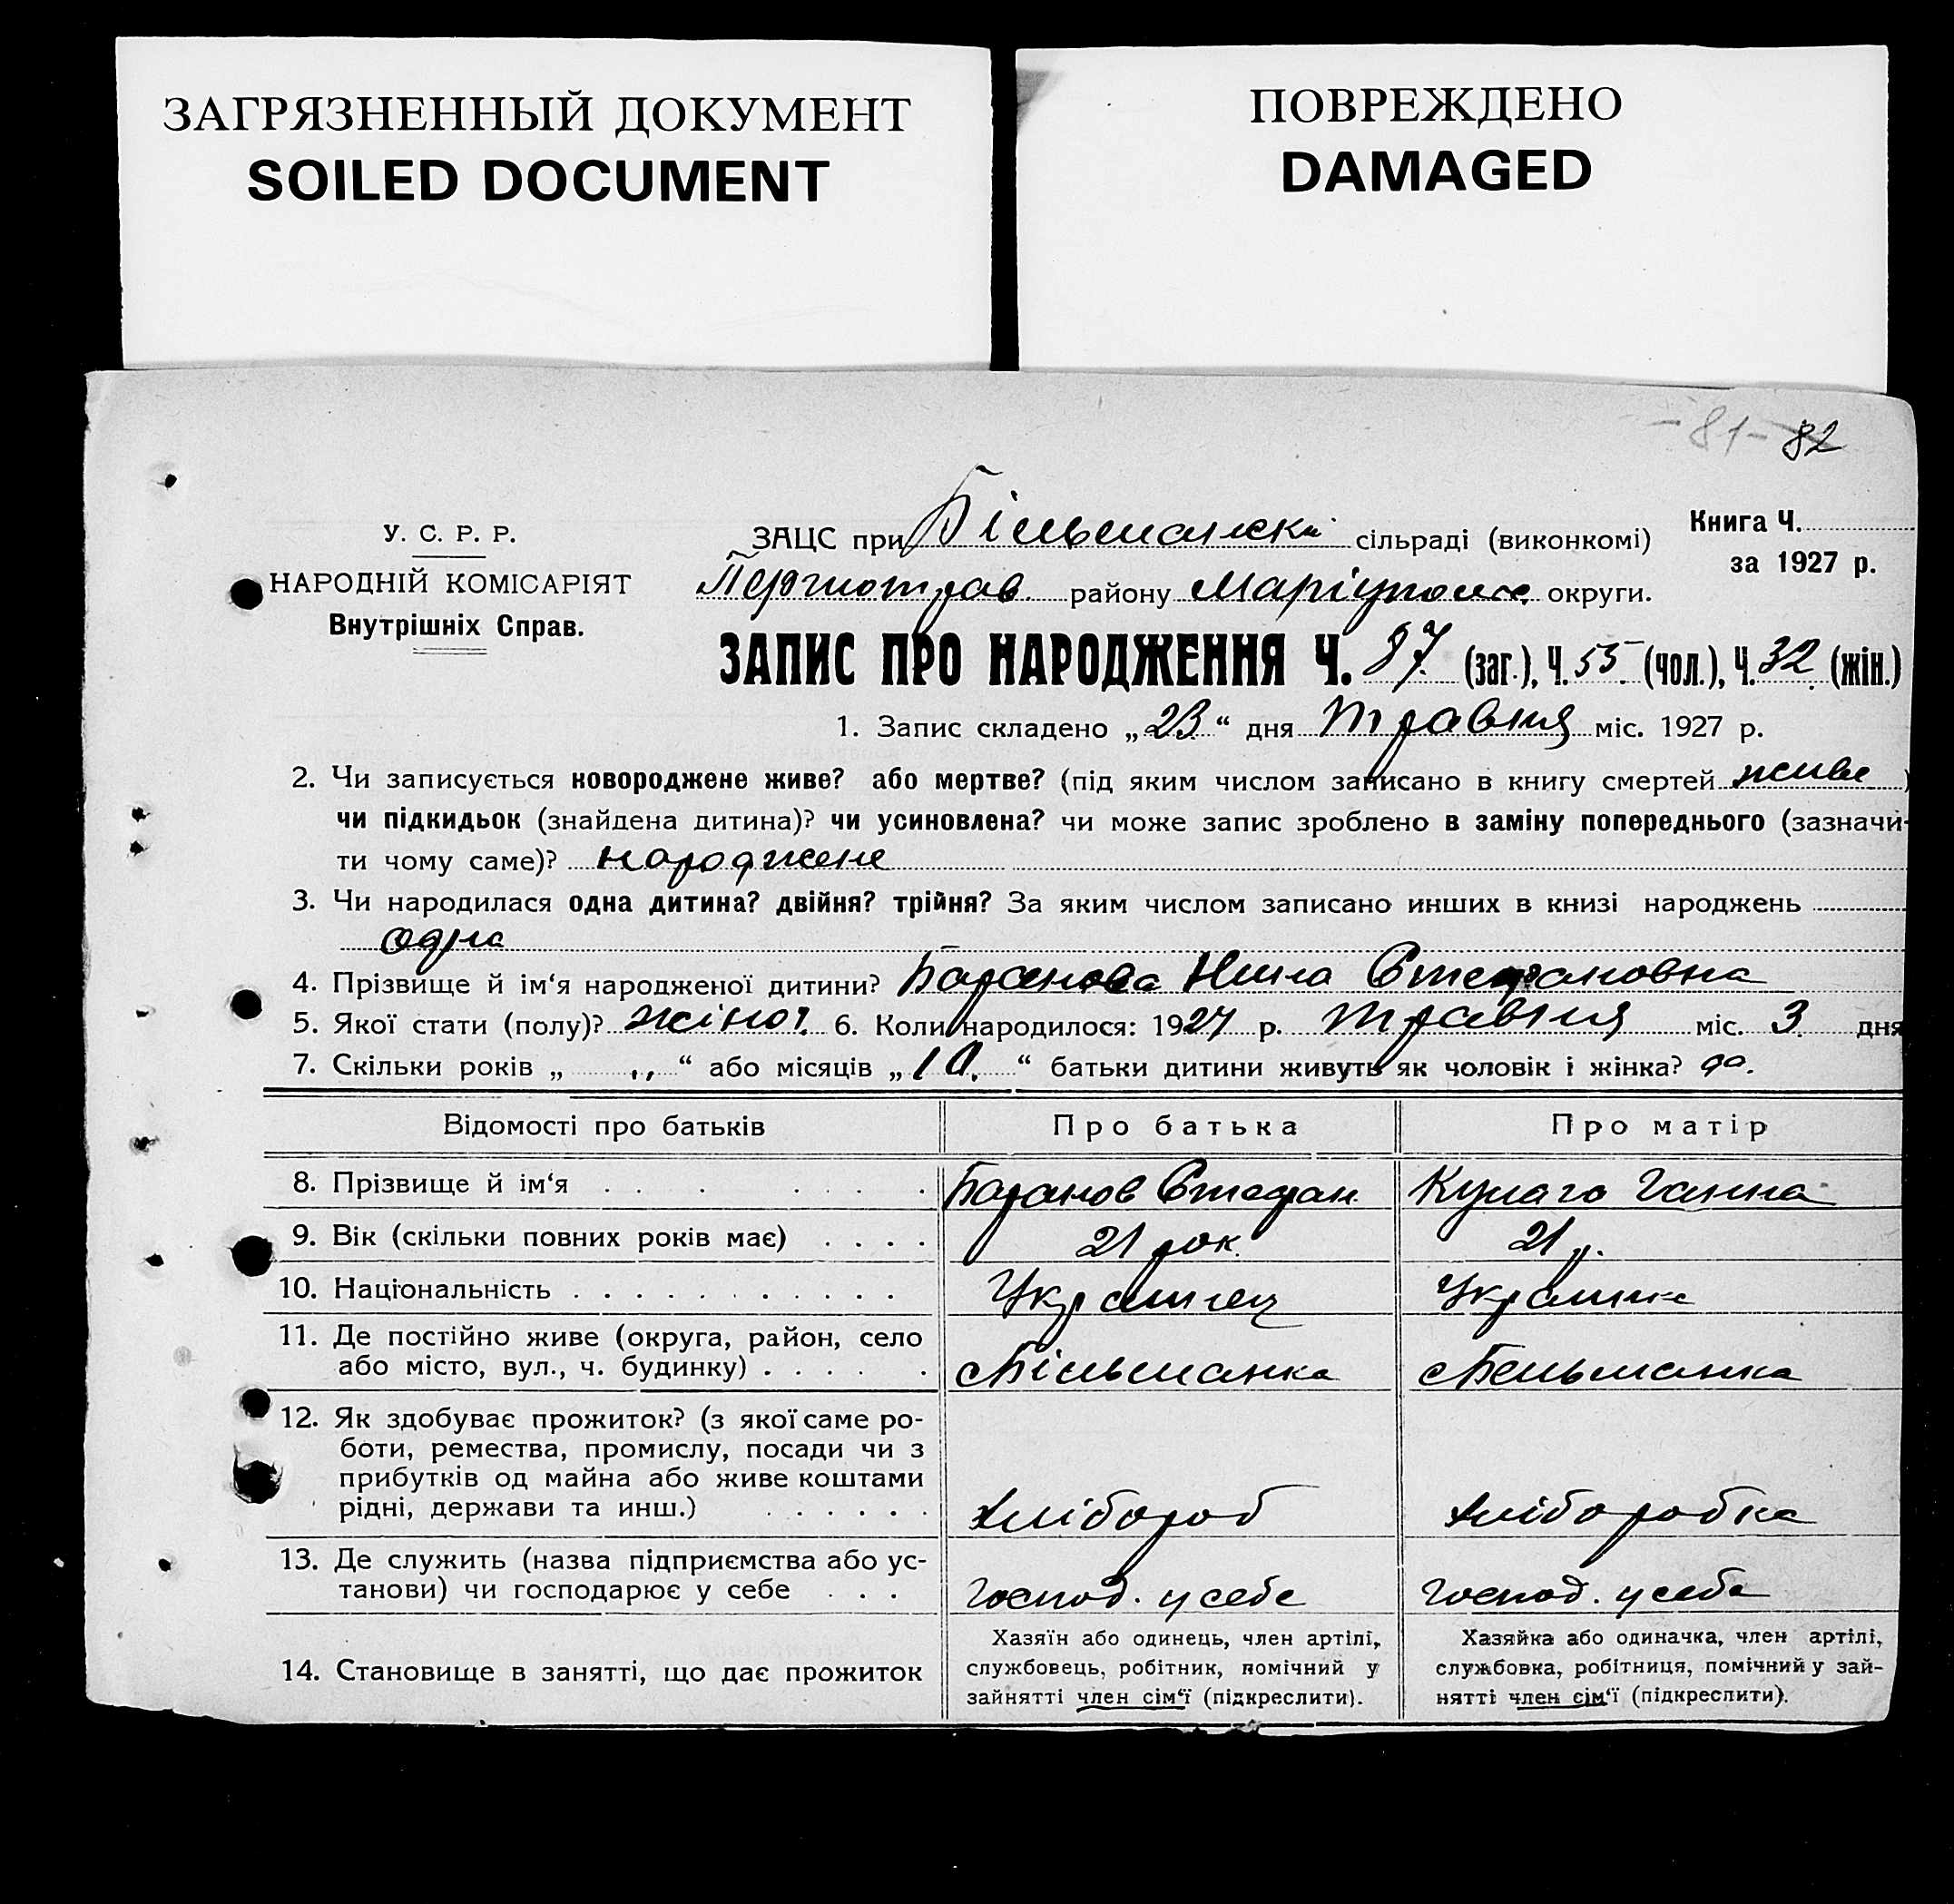 ЗАГРЯЗНЕННЫЙ ДОКУМЕНТ
SOILED DOCUMENT
ПОВРЕЖДЕНО
DAMAGED
-81- 82
У. С. Р. Р.
НАРОДНІЙ КОМІСАРІЯТ
Внутрішніх Справ.
ЗАЦС при Більманскі сільраді (виконкомі)
Книга Ч.
за 1927 р.
району Маріупольс. округи.
ЗАПИС ПРО НАРОДЖЕННЯ Ч. 87 (заг.), Ч. 55 (чол.), Ч. 32 (жін.)
1. Запис складено „23“ дня травня міс. 1927 р.
2. Чи записується новороджене живе? або мертве? (під яким числом записано в книгу смертей живе )
чи підкидьок (знайдена дитина)? чи усиновлена? чи може запис зроблено в заміну попереднього (зазначи-
ти чому саме)? народжене
3. Чи народилася одна дитина? двійня? трійня? За яким числом записано инших в книзі народжень
одна
4. Прізвище й ім‘я народженої дитини? Баранова Нина Стефановна
5. Якої стати (полу)? жіноч. 6. Коли народилося: 1927 р. травня міс. 3 дня
7. Скільки років „ „ “ або місяців „10.“ батьки дитини живуть як чоловік і жінка? да.
Відомості про батьків
Про батька
Про матір
8. Прізвище й ім‘я . . . . . . . Баранов Стефан Кулага Ганна
9. Вік (скільки повних років має) . . . . 21 рок. 21 р.
10. Національність . . . . . . . . . . . Украинец Украинка
11. Де постійно живе (округа, район, село
або місто, вул., ч. будинку) . . . . . с Більманка с Бельманка
12. Як здобуває прожиток? (з якої саме ро-
боти, ремества, промислу, посади чи з
прибутків од майна або живе коштами
рідні, держави та инш.) . . . . . . Хлібороб Хліборобка
13. Де служить (назва підприємства або ус-
танови) чи господарює у себе . . . Господ. у себе Господ. у себе
14. Становище в занятті, що дає прожиток
Хазяїн або одинець, член артілі,
службовець, робітник, помічний у
зайнятті член сім‘ї (підкреслити).
Хазяйка або одиначка, член артілі,
службовка, робітниця, помічний у зай-
нятті член сім‘ї (підкреслити).